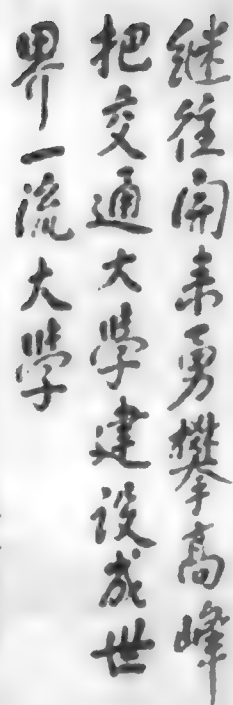 继往开来勇攀高峰
把交通大學建设成世
界一流大學